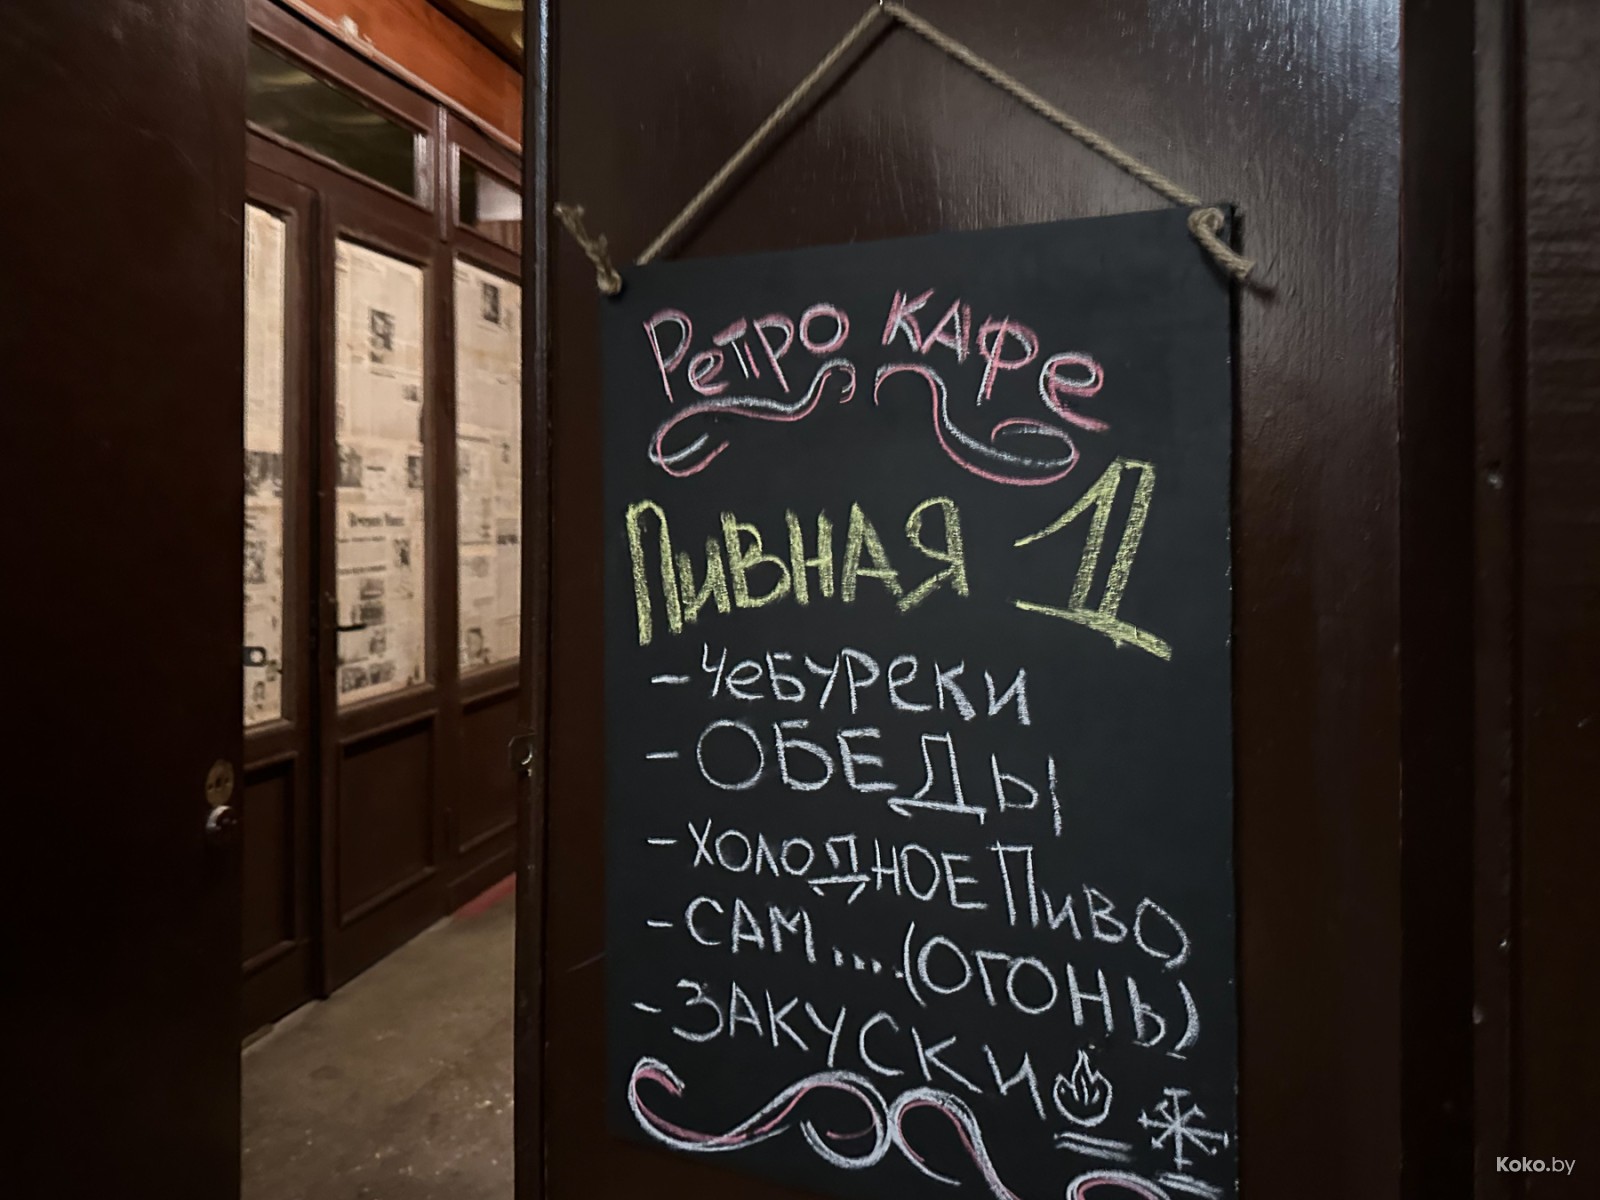 Ретро кафе
Пивная 1
- Чебуреки
- Обеды
- Холодное Пиво
- Сам....(огонь)
- Закуски
Koko.by